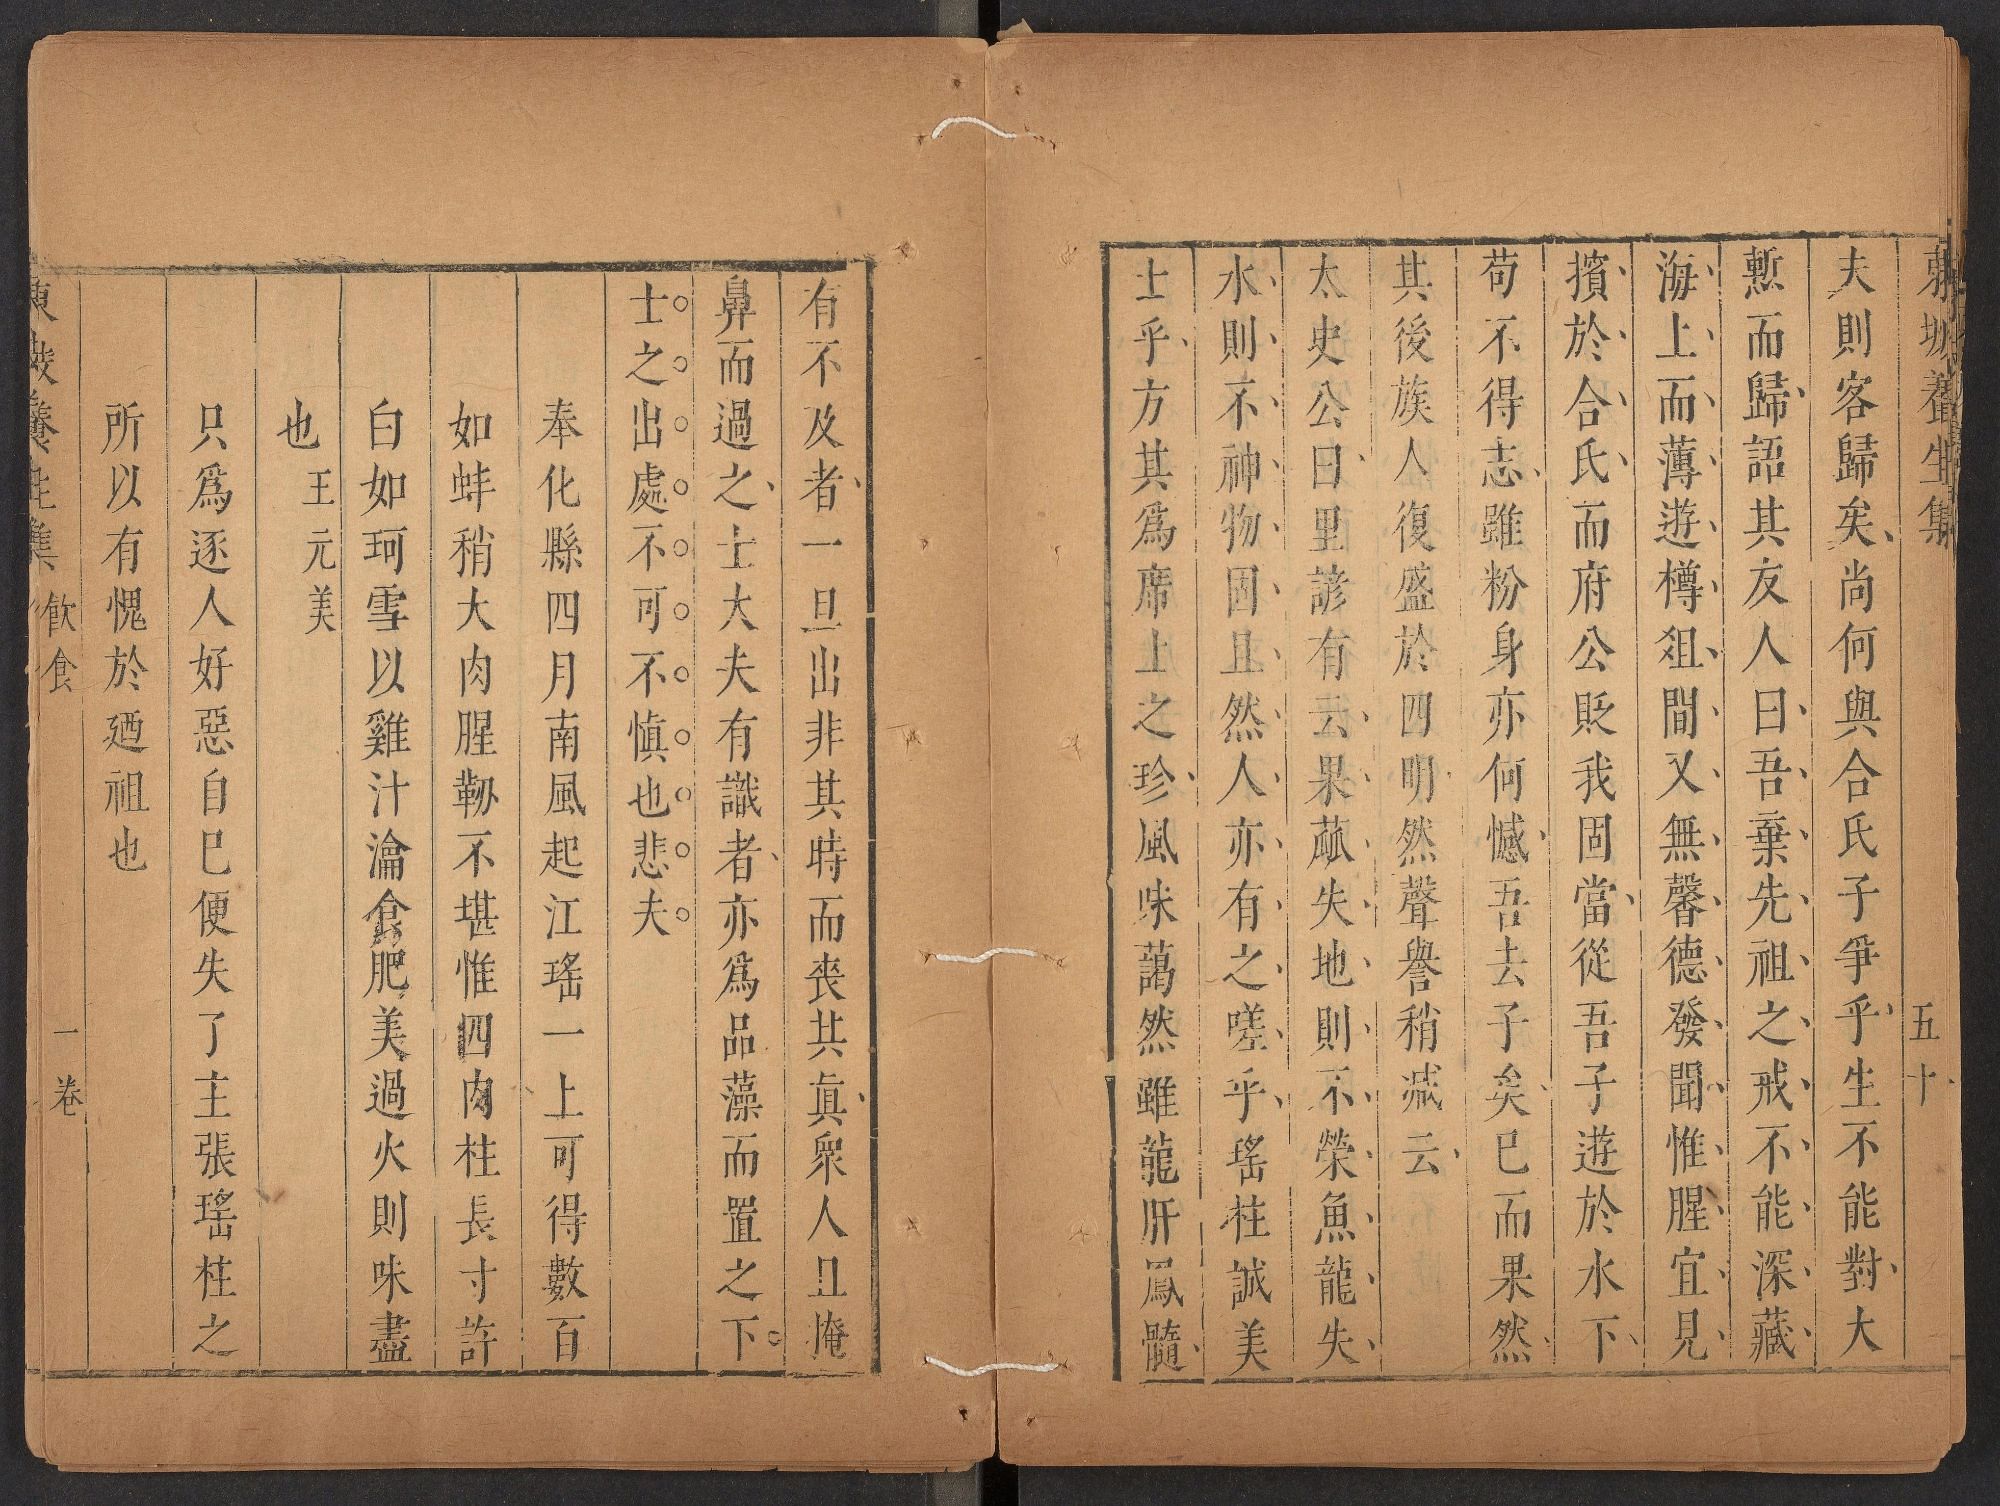 東坡養生集
五十
夫則客歸矣尚何與合氏子爭乎生不能對大
慙而歸語其友人曰吾棄先祖之戒不能深藏
海上而薄遊樽俎間又無馨德發聞惟腥宜見
擯於合氏而府公貶我固當從吾子遊於水下
苟不得志雖粉身亦何憾吾去子矣已而果然
其後族人復盛於四明然聲譽稍减云
太史公曰里諺有云果蓏失地則不榮魚龍失
水則不神物固且然人亦有之嗟乎瑤柱誠美
士乎方其爲席上之珍風味藹然雖龍肝鳳髓
有不及者一旦出非其時而喪其眞衆人且掩
鼻而過之士大夫有識者亦爲品藻而置之下
士之出處不可不愼也悲夫
奉化縣四月南風起江瑤一上可得數百
如蚌稍大肉腥韌不堪惟四肉柱長寸許
白如珂雪以雞汁瀹食肥美過火則味盡
也 王元美
只爲逐人好惡自已便失了主張瑤柱之
所以有愧於廼祖也
東坡養生集 飲食 一卷